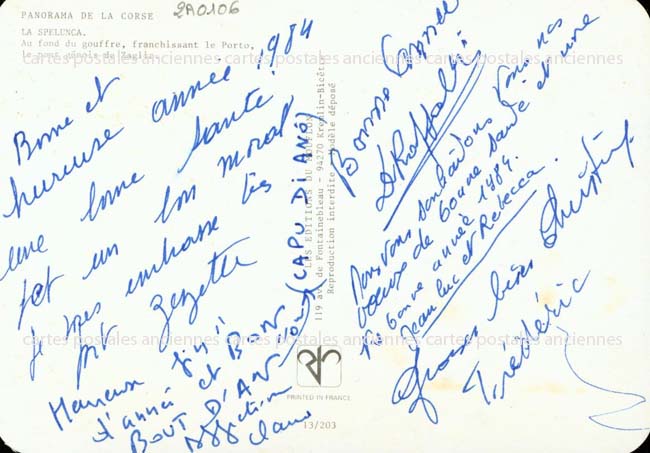 PANORAMA DE LA CORSE
2A0106
LA SPELUNCA.
Au fond du gouffre, franchissant le Porto,
le pont génois de Zaglia.
cartes postales anciennes cartes postales anciennes cartes postales anciennes
Bonne et
heureuse année 1984
une bonne santé
et un bon moral
je vous embrasse très
fort Zezette
Heureuse fin
d'année et BON
BOUT D'AN
(CAPU DI ANO)
Affection
LES EDITIONS DU MOUFLON
119 av de Fontainebleau - 94270 Kremlin-Bicêtre
Reproduction interdite - modèle déposé
Bonne Année
Nous vous souhaitons tous nos
voeux de bonne santé et une
bonne année 1984.
Jean Luc et Rebecca.
Grosses bises
Christine
Frédéric
cartes postales anciennes cartes postales anciennes cartes postales anciennes
PRINTED IN FRANCE
13/203